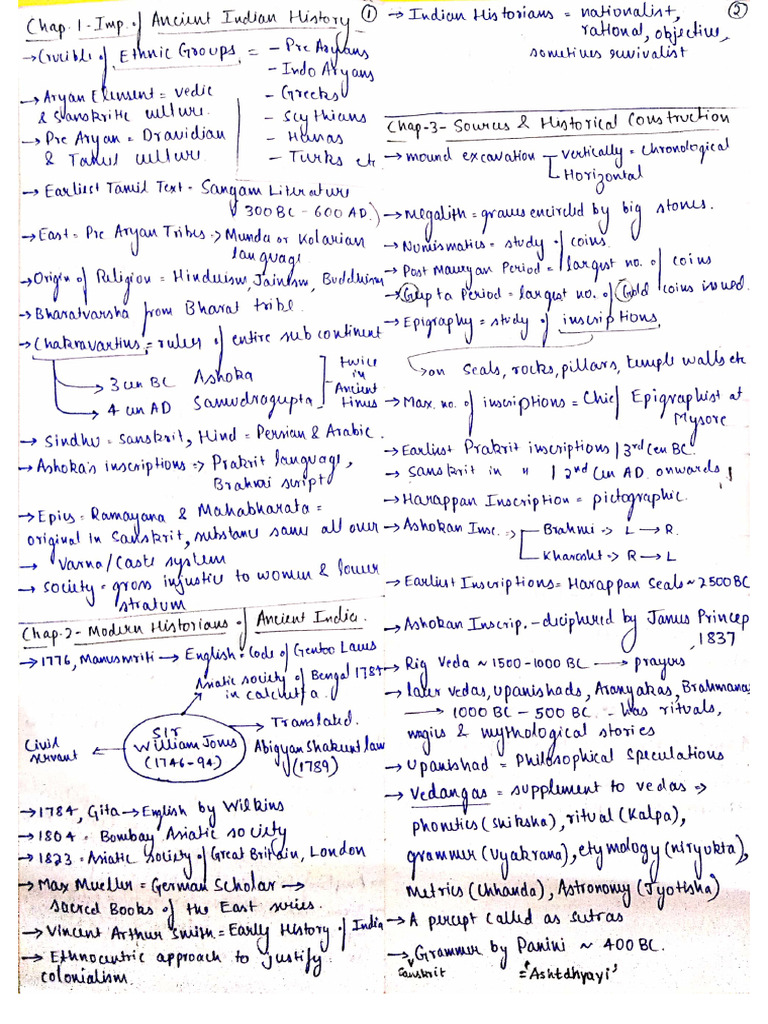 Chap. 1 - Imp. of Ancient Indian History ①
→ Crucible of Ethnic Groups = - Pre Aryans
- Indo Aryans
- Greeks
- Scythians
- Hunas
- Turks etc
→ Aryan Element = vedic
& Sanskritic culture.
→ Pre Aryan = Dravidian
& Tamil culture
→ Earliest Tamil Text - Sangam Literature
↓ 300 BC - 600 AD.)
→ East = Pre Aryan Tribes => Munda or Kolarian
language
→ Origin of Religion = Hinduism, Jainism, Buddhism
→ Bharatvarsha from Bharat tribe.
→ Chakravartins = rules of entire sub continent
→ 3 cen BC Ashoka
→ 4 cen AD Samudragupta
twice
in
Ancient
times
→ Sindhu = Sanskrit, Hind = Persian & Arabic.
→ Ashoka's inscriptions => Prakrit language,
Brahmi script
→ Epics = Ramayana & Mahabharata =
original in Sanskrit, substance same all over
→ Varna/Caste system
→ Society = gross injustice to women & lower
stratum
Chap-2- Modern Historians of Ancient India.
→ 1776, Manusmriti → English = Code of Gentoo Laws
Asiatic society of Bengal 1784
in calcutta.
Sir
William Jones
(1746-94)
Civil
servant
→ Translated.
Abigyan Shakuntlam
(1789)
→ 1784, Gita → English by Wilkins
→ 1804 = Bombay Asiatic society
→ 1823 = Asiatic society of Great Britain, London
→ Max Mueller = German Scholar →
Sacred Books of the East series.
→ Vincent Arthur Smith = Early History of India
→ Ethnocentric approach to justify
colonialism.
→ Indian Historians = nationalist, ②
rational, objective,
sometimes revivalist
Chap-3- Sources & Historical Construction
→ mound excavation vertically = Chronological
Horizontal
→ Megalith = graves encircled by big stones.
→ Numismatics = study of coins.
→ Post Mauryan Period = largest no. of coins
→ Gupta Period = largest no. of Gold coins issued.
→ Epigraphy = study of inscriptions,
→ on seals, rocks, pillars, temple walls etc
→ Max. no. of inscriptions = Chief Epigraphist at
Mysore
→ Earliest Prakrit inscriptions / 3rd Cen BC.
→ Sanskrit in " / 2nd Cen AD. onwards
→ Harappan Inscription = pictographic.
→ Ashokan Insc. => Brahmi -> L → R.
Kharosht -> R → L
→ Earliest Inscriptions = Harappan Seals ~ 2500 BC
→ Ashokan Inscrip. - deciphered by James Princep
, 1837
→ Rig Veda ~ 1500-1000 BC → prayers
→ later vedas, Upanishads, Aranyakas, Brahmanas
→ 1000 BC - 500 BC. - has rituals,
magics & mythological stories
→ Upanishad = Philosophical Speculations
→ Vedangas = supplement to vedas =>
phonetics (Shiksha), ritual (Kalpa),
grammer (Vyakrana), etymology (niryukta),
Metrics (Chhanda), Astronomy (Jyotisha)
→ A percept called as sutras
→ Grammer by Panini ~ 400 BC.
Sanskrit = 'Ashtdhyayi'